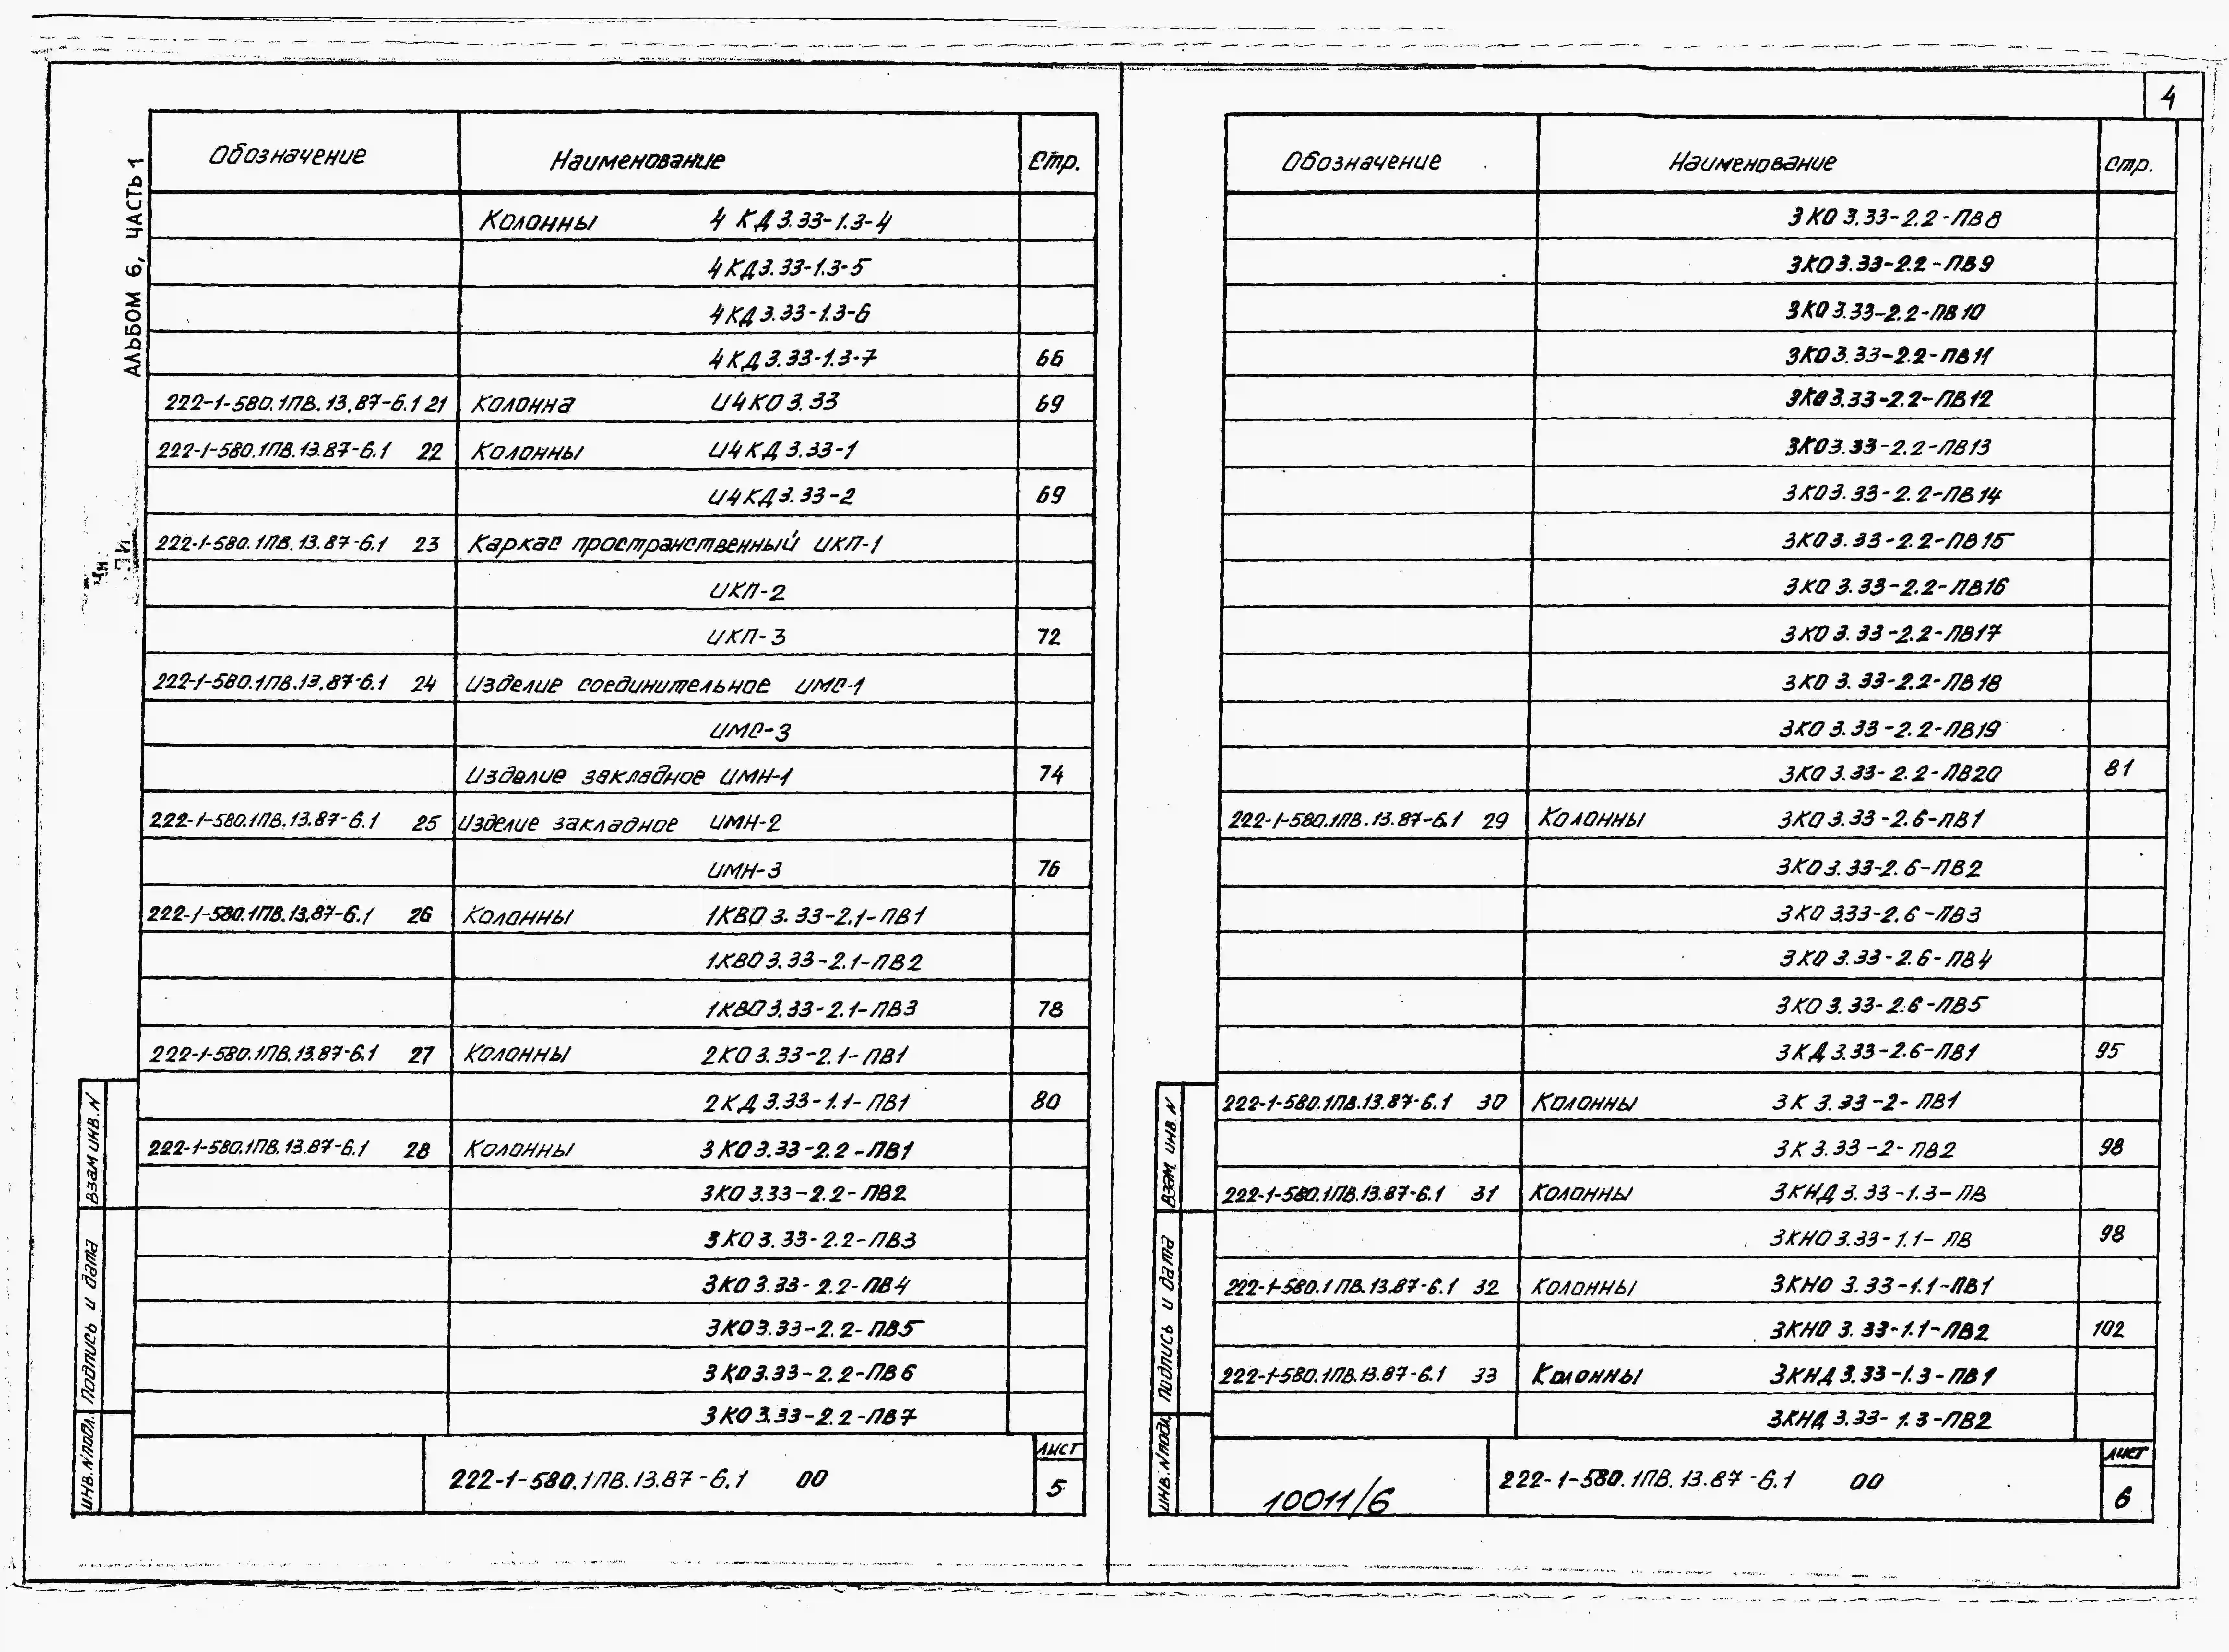 АЛЬБОМ 6, ЧАСТЬ 1
Обозначение Наименование Стр.
Колонны 4 КД 3.33-1.3-4
4КД3.33-1.3-5
4КД3.33-1.3-6
4КД3.33-1.3-7 66
222-1-580.1ПВ.13.87-6.1 21 Колонна И4КО3.33 69
222-1-580.1ПВ.13.87-6.1 22 Колонны И4КД3.33-1
И4КД3.33-2 69
222-1-580.1ПВ.13.87-6.1 23 Каркас пространственный ИКП-1
ИКП-2
ИКП-3 72
222-1-580.1ПВ.13.87-6.1 24 Изделие соединительное ИМС-1
ИМС-3
Изделие закладное ИМН-1 74
222-1-580.1ПВ.13.87-6.1 25 Изделие закладное ИМН-2
ИМН-3 76
222-1-580.1ПВ.13.87-6.1 26 Колонны 1КВО3.33-2.1-ПВ1
1КВО3.33-2.1-ПВ2
1КВО3.33-2.1-ПВ3 78
222-1-580.1ПВ.13.87-6.1 27 Колонны 2КО3.33-2.1-ПВ1
2КД3.33-1.1-ПВ1 80
222-1-580.1ПВ.13.87-6.1 28 Колонны 3КО3.33-2.2-ПВ1
3КО3.33-2.2-ПВ2
3КО3.33-2.2-ПВ3
3КО3.33-2.2-ПВ4
3КО3.33-2.2-ПВ5
3КО3.33-2.2-ПВ6
3КО3.33-2.2-ПВ7
Взам инв. N
Подпись и дата
Инв.Nподл.
222-1-580.1ПВ.13.87-6.1 00
Лист
5
4
Обозначение Наименование Стр.
3КО3.33-2.2-ПВ8
3КО3.33-2.2-ПВ9
3КО3.33-2.2-ПВ10
3КО3.33-2.2-ПВ11
3КО3.33-2.2-ПВ12
3КО3.33-2.2-ПВ13
3КО3.33-2.2-ПВ14
3КО3.33-2.2-ПВ15
3КО3.33-2.2-ПВ16
3КО3.33-2.2-ПВ17
3КО3.33-2.2-ПВ18
3КО3.33-2.2-ПВ19
3КО3.33-2.2-ПВ20 81
222-1-580.1ПВ.13.87-6.1 29 Колонны 3КО3.33-2.6-ПВ1
3КО3.33-2.6-ПВ2
3КО3.33-2.6-ПВ3
3КО3.33-2.6-ПВ4
3КО3.33-2.6-ПВ5
3КД3.33-2.6-ПВ1 95
222-1-580.1ПВ.13.87-6.1 30 Колонны 3К3.33-2-ПВ1
3К3.33-2-ПВ2 98
222-1-580.1ПВ.13.87-6.1 31 Колонны 3КНД3.33-1.3-ПВ
3КНО3.33-1.1-ПВ 98
222-1-580.1ПВ.13.87-6.1 32 Колонны 3КНО 3.33-1.1-ПВ1
3КНО 3.33-1.1-ПВ2 102
222-1-580.1ПВ.13.87-6.1 33 Колонны 3КНД3.33-1.3-ПВ1
3КНД3.33-1.3-ПВ2
Взам. инв. N
Подпись и дата
Инв.Nподл.
10011/6
222-1-580.1ПВ.13.87-6.1 00
Лист
6